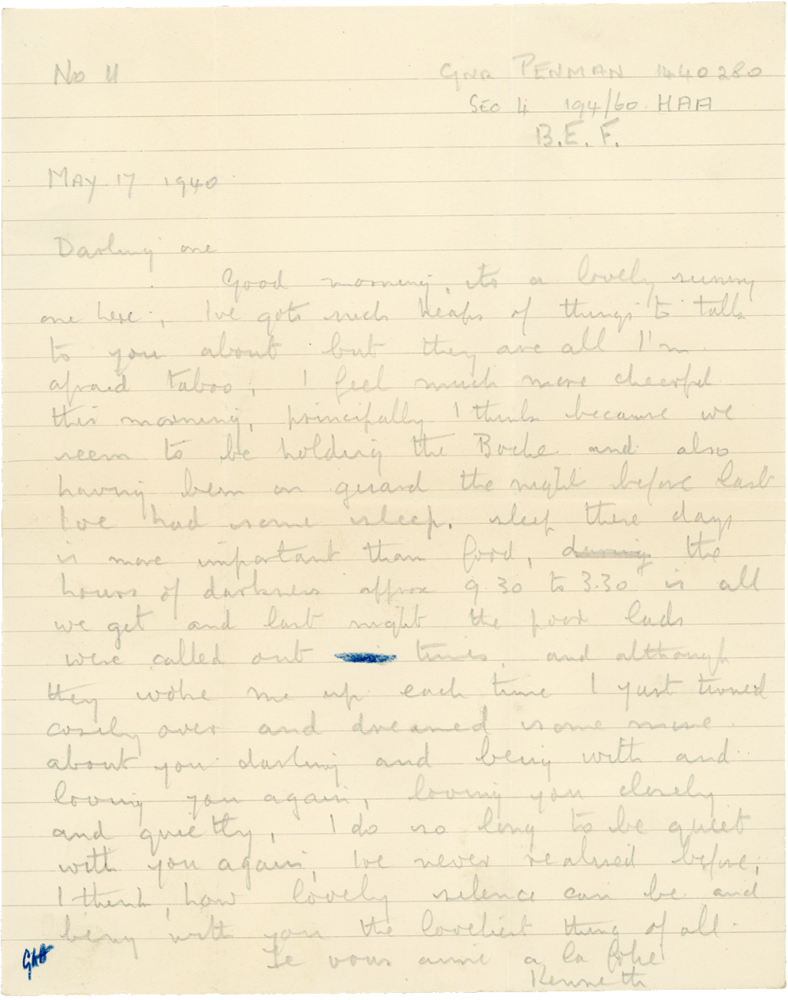 No 11
GNR PENMAN 1440280
SEC 4 194/60 HAA
B.E.F.
MAY 17 1940
Darling one
Good morning, its a lovely sunny
one here, I've got such heaps of things to talk
to you about but they are all I'm
afraid taboo, I feel much more cheerful
this morning, principally I think because we
seem to be holding the Boche and also
having been on guard the night before last
I've had some sleep. sleep these days
is more important than food, during the
hours of darkness approx 9.30 to 3.30 is all
we get and last night the poor lads
were called out times, and although
they woke me up each time I just turned
cosily over and dreamed some more
about you darling and being with and
loving you again, loving you closely
and quietly, I do so long to be quiet
with you again, I've never realised before,
I think, how lovely silence can be and
being with you the loveliest thing of all.
Je vous aime a la folie
Kenneth